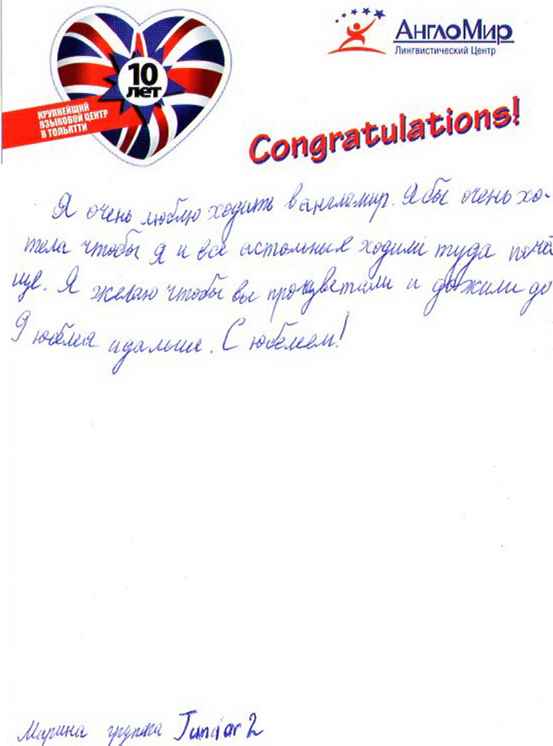 10
ЛЕТ
КРУПНЕЙШИЙ
ЯЗЫКОВОЙ ЦЕНТР
В ТОЛЬЯТТИ
АнглоМир
Лингвистический Центр
Congratulations!
Я очень люблю ходить в англомир. Я бы очень хо-
тела чтобы я и все астольния ходили туда поча
ще. Я желаю чтобы вы процветали и дожили до
9 юбелея и дальше. С юбелеем!
Марина группа Junior 2